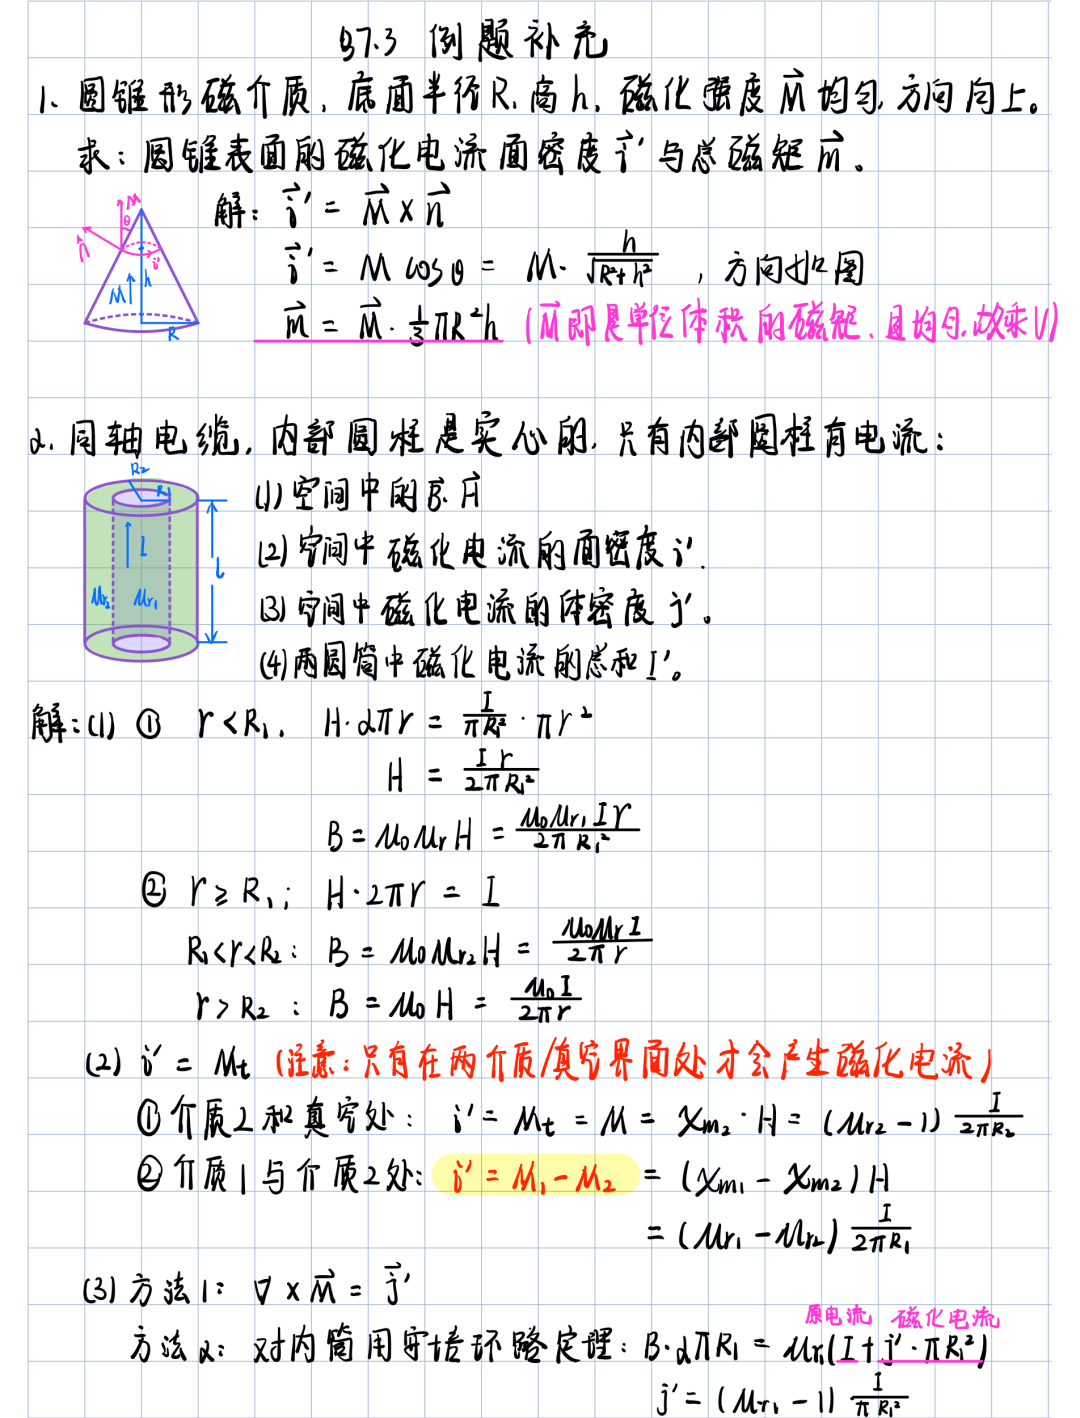 §7.3 例题补充
1、圆锥形磁介质，底面半径R，高h，磁化强度M⃗均匀，方向向上。
求：圆锥表面的磁化电流面密度i⃗'与总磁矩m⃗。
解：i⃗' = M⃗ × n⃗
i⃗' = M cosθ = M · h/√(R²+h²) ，方向如图
m⃗ = M⃗ · 1/3 πR²h (M⃗即是单位体积的磁矩，且均匀，故乘V)
M
θ
n̂
i'
M
h
R
2、同轴电缆，内部圆柱是实心的，只有内部圆柱有电流：
(1) 空间中的B⃗、H⃗
(2) 空间中磁化电流的面密度i'.
(3) 空间中磁化电流的体密度j'。
(4) 两圆筒中磁化电流的总和I'。
R₂
R₁
I
L
μr₂
μr₁
解：(1) ① r < R₁， H·2πr = I/(πR₁²) · πr²
H = Ir/(2πR₁²)
B = μ₀μrH = μ₀μr₁Ir/(2πR₁²)
② r ≥ R₁； H·2πr = I
R₁<r<R₂： B = μ₀μr₂H = μ₀μrI/(2πr)
r > R₂ ： B = μ₀H = μ₀I/(2πr)
(2) i' = Mt (注意：只有在两介质/真空界面处才会产生磁化电流)
① 介质2和真空处： i' = Mt = M = χm₂·H = (μr₂ - 1) I/(2πR₂)
② 介质1与介质2处： i' = M₁ - M₂ = (χm₁ - χm₂)H
= (μr₁ - μr₂) I/(2πR₁)
(3) 方法1： ∇ × M⃗ = j⃗'
原电流 磁化电流
方法2： 对内筒用安培环路定理：B·2πR₁ = μr₁(I + j'·πR₁²)
j' = (μr₁ - 1) I/(πR₁²)